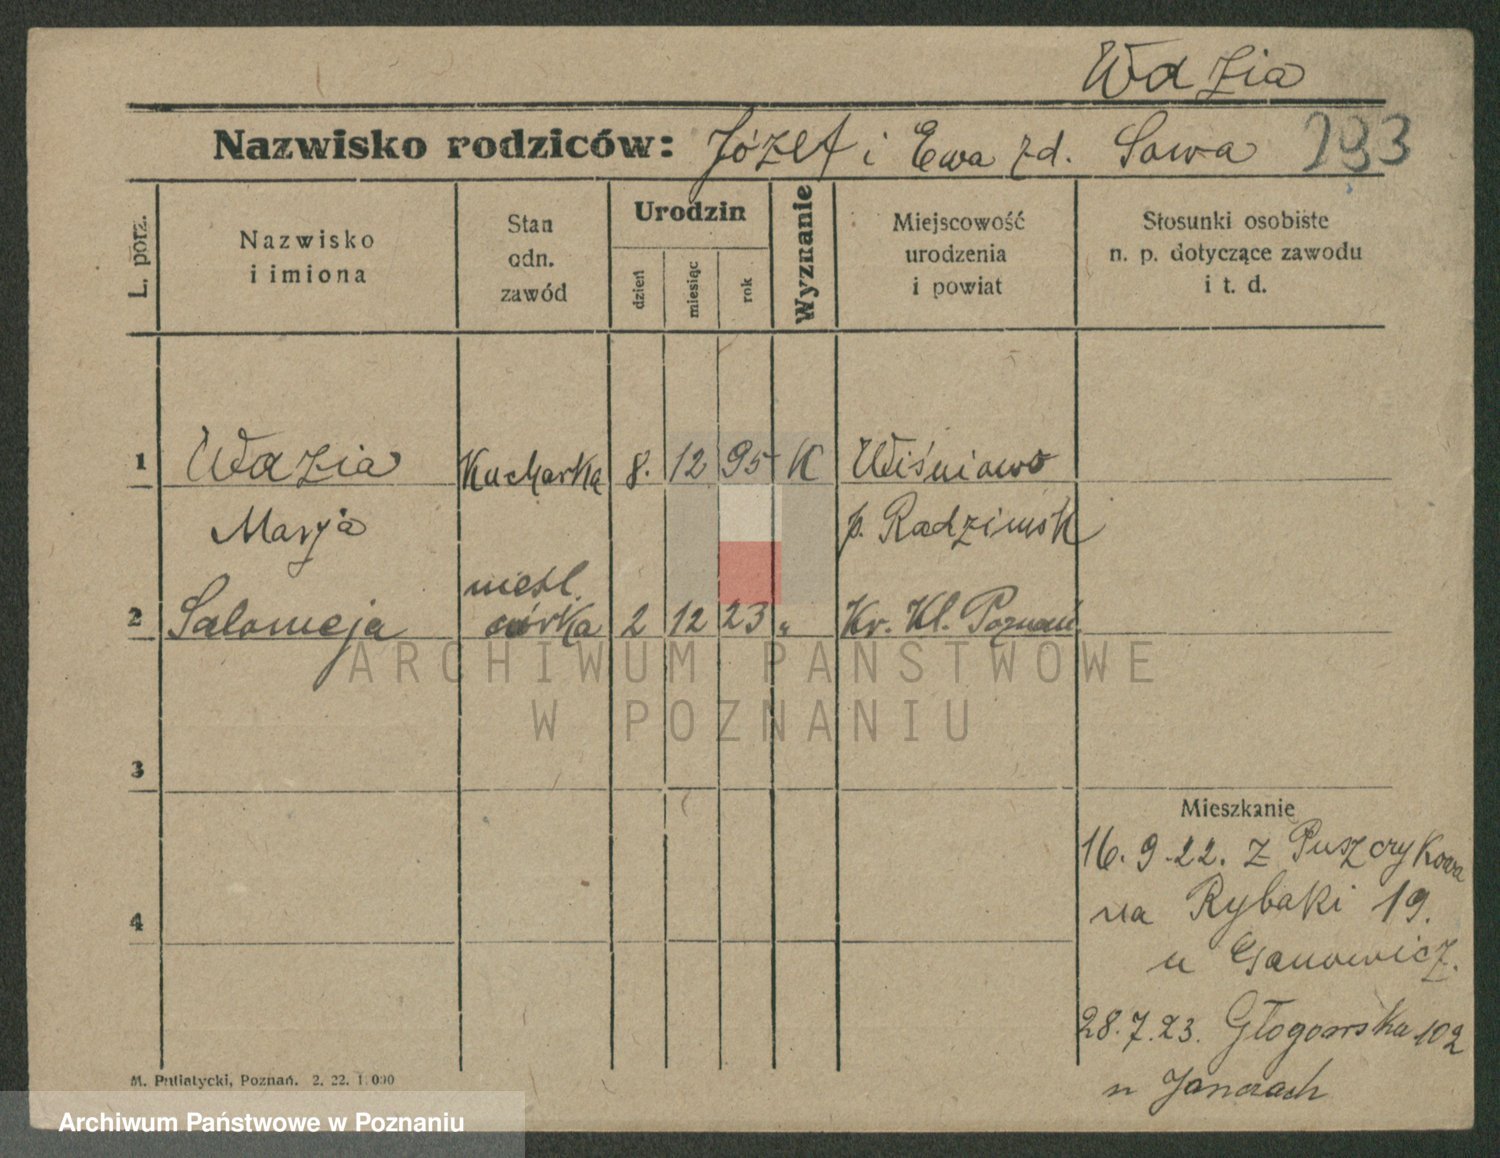 Wdzia
Nazwisko rodziców: Józef i Ewa zd. Sowa 293
L. porz.
Nazwisko
i imiona
Stan
odn.
zawód
Urodzin
dzień
miesiąc
rok
Wyznanie
Miejscowość
urodzenia
i powiat
Stosunki osobiste
n. p. dotyczące zawodu
i t. d.
1 Kucharka 8. 12 95 K Wiśniowo
Marja p. Radzimsk
nieśl.
2 Salomeja córka 2 12 23 „ Kr. Kl. Poznań
ARCHIWUM PAŃSTWOWE
W POZNANIU
3
Mieszkanie
16.9.22. z Puszczykowa
4 na Rybaki 19.
u Ganowicz.
28.7.23. Głogowska 102
u
M. Putiatycki, Poznań. 2. 22. 1.000
Archiwum Państwowe w Poznaniu